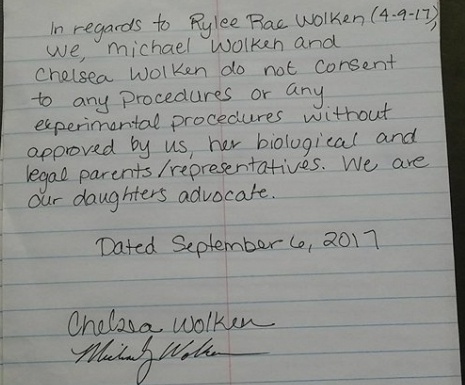 In regards to Rylee Rae Wolken (4-9-17),
we, Michael Wolken and
Chelsea Wolken do not consent
to any procedures or any
experimental procedures without
approved by us, her biological and
legal parents/representatives. We are
our daughters advocate.
Dated September 6, 2017
Chelsea Wolken
Michael Wolken